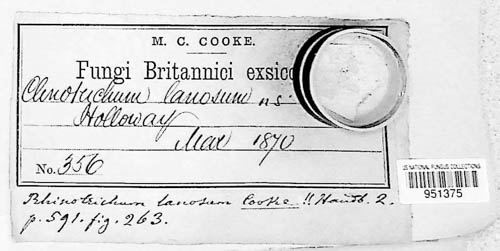 M. C. COOKE.
Fungi Britannici exsicc
Clinotrichum lanosum ns
Holloway
Mar 1870
No. 356
US NATIONAL FUNGUS COLLECTIONS
951375
Rhinotrichum lanosum Cooke !! Handb. 2.
p. 591. fig. 263.